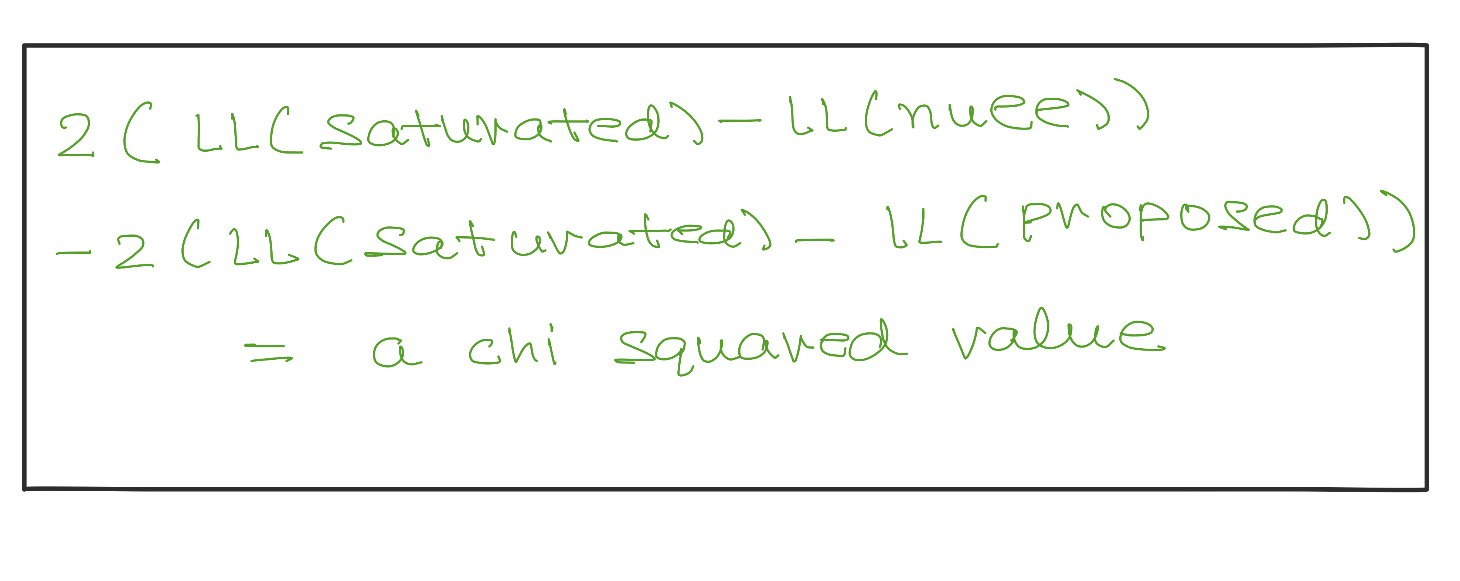 2 ( LL( saturated) - LL(null))
- 2 (LL( saturated) - LL( proposed))
= a chi squared value